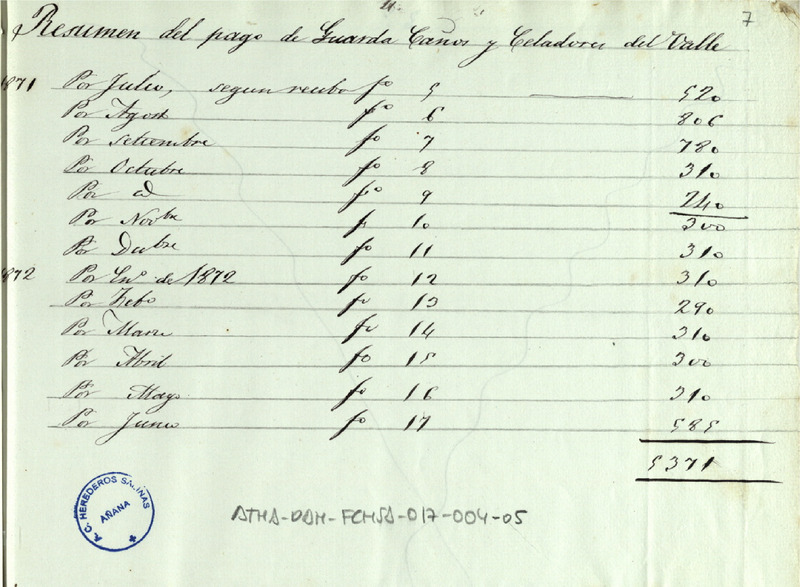 7
Resumen del pago de Guarda Caños y Celadores del Valle
1871 Por Julio, segun recibo fo 5 520
Por Agosto fo 6 806
Por Setiembre fo 7 780
Por Octubre fo 8 310
Por id fo 9 240
Por Novbre fo 10 300
Por Dubre fo 11 310
1872 Por Eno de 1872 fo 12 310
Por Febo fo 13 290
Por Marzo fo 14 310
Por Abril fo 15 300
Por Mayo fo 16 310
Por Junio fo 17 585
5371
A. C. HEREDEROS SALINAS
AÑANA
ATHA-DAH-FCHSA-017-004-05